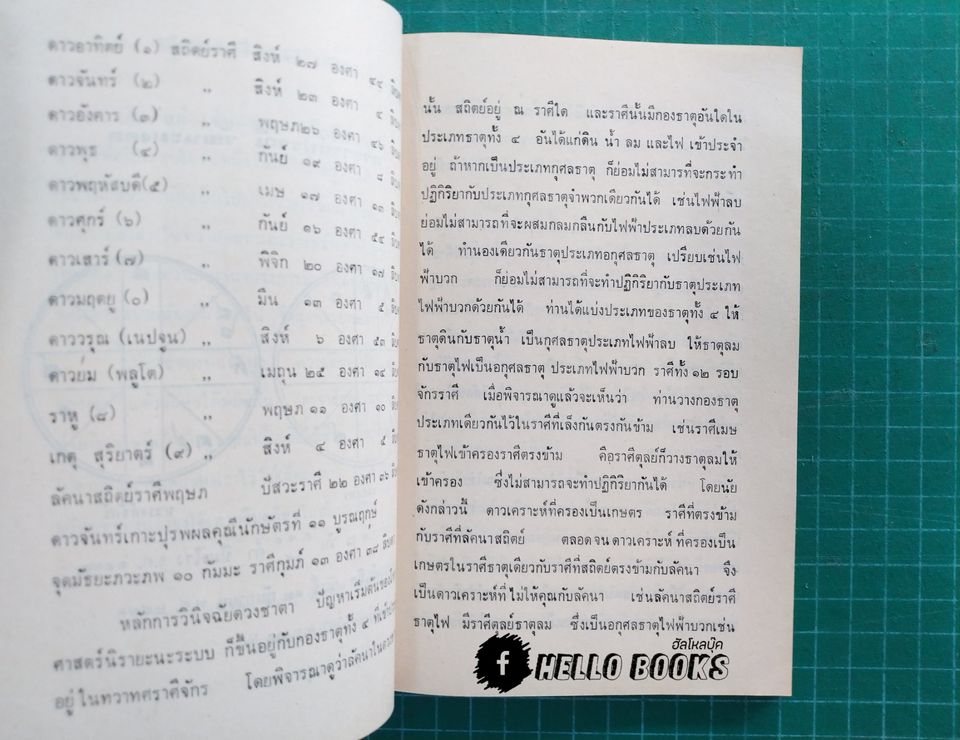 ดาวอาทิตย์ (๑) สถิตย์ราศี สิงห์ ๒๗ องศา ๔๔
ดาวจันทร์ (๒) ,, สิงห์ ๒๓ องศา ๔
ดาวอังคาร (๓) ,, พฤษภ๒๖ องศา ๔๖
ดาวพุธ (๔) ,, กันย์ ๑๙ องศา ๘
ดาวพฤหัสบดี(๕) ,, เมษ ๑๗ องศา ๑๓
ดาวศุกร์ (๖) ,, กันย์ ๑๖ องศา ๕๔
ดาวเสาร์ (๗) ,, พิจิก ๒๐ องศา ๑๗
ดาวมฤตยู (๐) ,, มีน ๑๓ องศา ๕
ดาววรุณ (เนปจูน) ,, สิงห์ ๖ องศา ๕๓
ดาวยม (พลูโต) ,, เมถุน ๒๕ องศา ๑๔
ราหู (๘) ,, พฤษภ ๑๑ องศา ๑๐
เกตุ สุริยาตร์ (๙) ,, สิงห์ ๔ องศา ๕
ลัคนาสถิตย์ราศีพฤษภ ปัสวะราศี ๒๒ องศา ๓๖
ดาวจันทร์เกาะปุรพผลคุณีนักษัตรที่ ๑๑ บูรณฤกษ์
จุดมัธยะภวะภพ ๑๐ กัมมะ ราศีกุมภ์ ๑๓ องศา ๓๘
หลักการวินิจฉัยดวงชาตา ปัญหาเริ่มต้นของ
ศาสตร์นิรายะนะระบบ ก็ขึ้นอยู่กับกองธาตุทั้ง ๔ ที่เข้า
อยู่ในทวาทศราศีจักร โดยพิจารณาดูว่าลัคนาใน
นั้น สถิตย์อยู่ ณ ราศีใด และราศีนั้นมีกองธาตุอันใดใน
ประเภทธาตุทั้ง ๔ อันได้แก่ดิน น้ำ ลม และไฟ เข้าประจำ
อยู่ ถ้าหากเป็นประเภทกุศลธาตุ ก็ย่อมไม่สามารที่จะกระทำ
ปฏิกิริยากับประเภทกุศลธาตุจำพวกเดียวกันได้ เช่นไฟฟ้าลบ
ย่อมไม่สามารถที่จะผสมกลมกลืนกับไฟฟ้าประเภทลบด้วยกัน
ได้ ทำนองเดียวกันธาตุประเภทอกุศลธาตุ เปรียบเช่นไฟ
ฟ้าบวก ก็ย่อมไม่สามารถที่จะทำปฏิกิริยากับธาตุประเภท
ไฟฟ้าบวกด้วยกันได้ ท่านได้แบ่งประเภทของธาตุทั้ง ๔ ให้
ธาตุดินกับธาตุน้ำ เป็นกุศลธาตุประเภทไฟฟ้าลบ ให้ธาตุลม
กับธาตุไฟเป็นอกุศลธาตุ ประเภทไฟฟ้าบวก ราศีทั้ง ๑๒ รอบ
จักรราศี เมื่อพิจารณาดูแล้วจะเห็นว่า ท่านวางกองธาตุ
ประเภทเดียวกันไว้ในราศีที่เล็งกันตรงกันข้าม เช่นราศีเมษ
ธาตุไฟเข้าครองราศีตรงข้าม คือราศีตุลย์ก็วางธาตุลมให้
เข้าครอง ซึ่งไม่สามารถจะทำปฏิกิริยากันได้ โดยนัย
ดังกล่าวนี้ ดาวเคราะห์ที่ครองเป็นเกษตร ราศีที่ตรงข้าม
กับราศีที่ลัคนาสถิตย์ ตลอดจนดาวเคราะห์ที่ครองเป็น
เกษตรในราศีธาตุเดียวกับราศีที่สถิตย์ตรงข้ามกับลัคนา จึง
เป็นดาวเคราะห์ที่ไม่ให้คุณกับลัคนา เช่นลัคนาสถิตย์ราศี
ธาตุไฟ มีราศีตุลย์ธาตุลม ซึ่งเป็นอกุศลธาตุไฟฟ้าบวกเช่น
ฮัลโหลบุ๊ค
f HELLO BOOKS